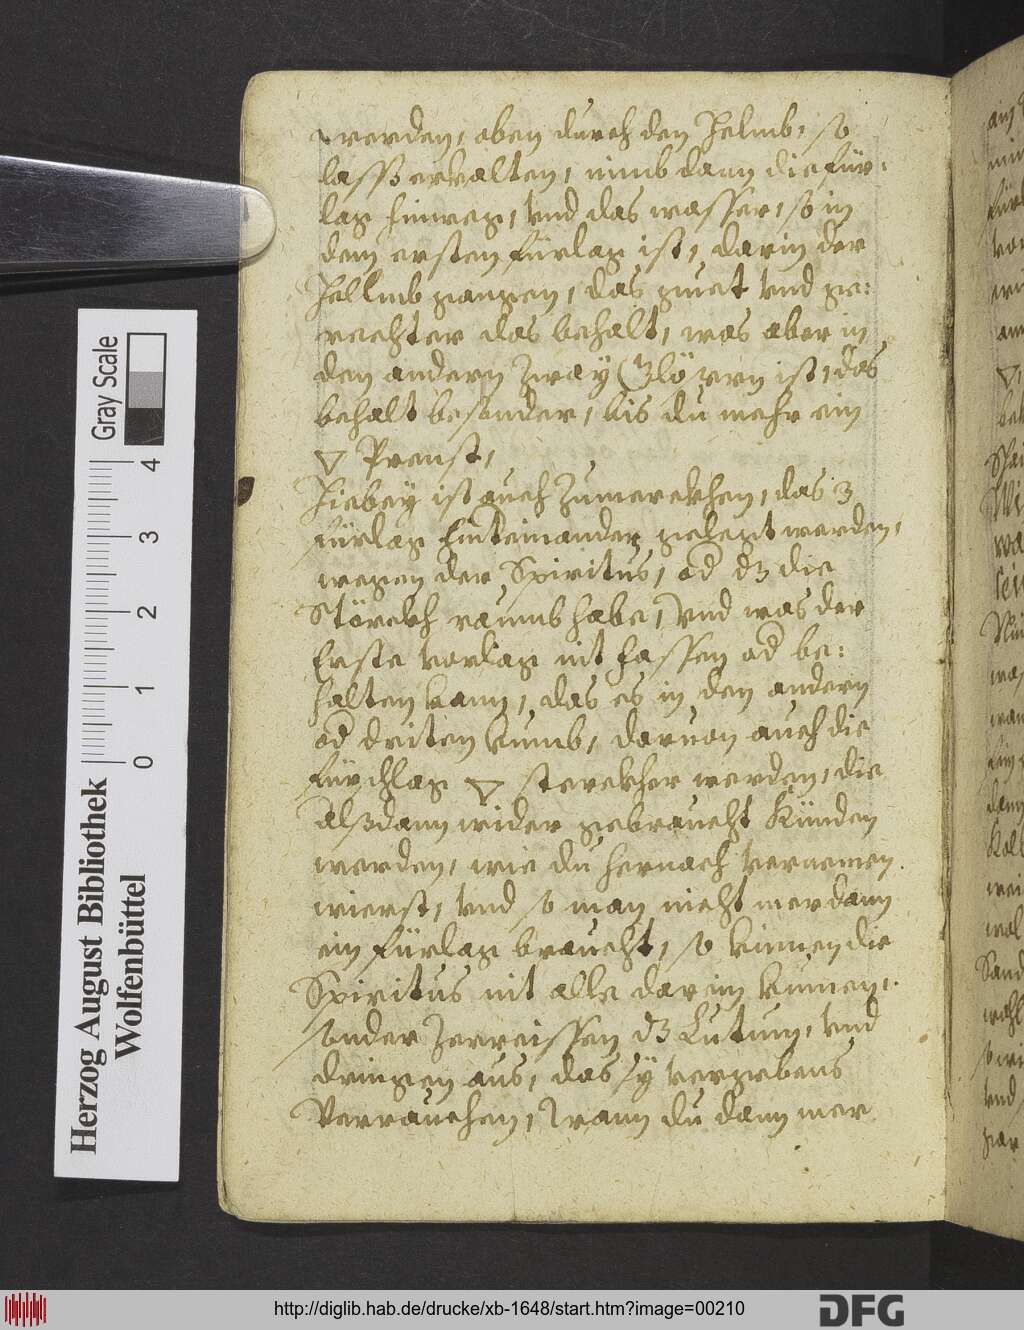 werden, oben durch den Helmb, so
lasß erkalten, nimb dann die für:
lag hinweg, vnd das wasser, so in
dem ersten fürlag ist, darin der
Hellmb gangen, das guet vnd ge:
rechter das behalt, was aber in
den andern Zway Glösern ist, das
behalt besonder, bis du mehr ein
▽ Prenst,
Hiebey ist auch Zumerckhen, das 3
fürlag hinteinander gelegt werden,
wegen der Spiritus, od dz die
Störckh raumb habe, Vnd was der
Erste vorlag nit fassen od be:
halten kann, das es in den andern
od driten kumb, daruon auch die
fürchlag ▽ sterckher werden, die
alßdann wider gebraucht Künden
werden, wie du hernach vernemen
wierst, vnd so man nicht mer dann
ein fürlag braucht, so künnen die
Spiritus nit alle darein kumen,
sonder Zerreissen dz Lutum, vnd
dringen aus, das sy vergebens
Verrauchen, Wann du dann mer
Herzog August Bibliothek
Wolfenbüttel
Gray Scale
0 1 2 3 4
http://diglib.hab.de/drucke/xb-1648/start.htm?image=00210
DFG